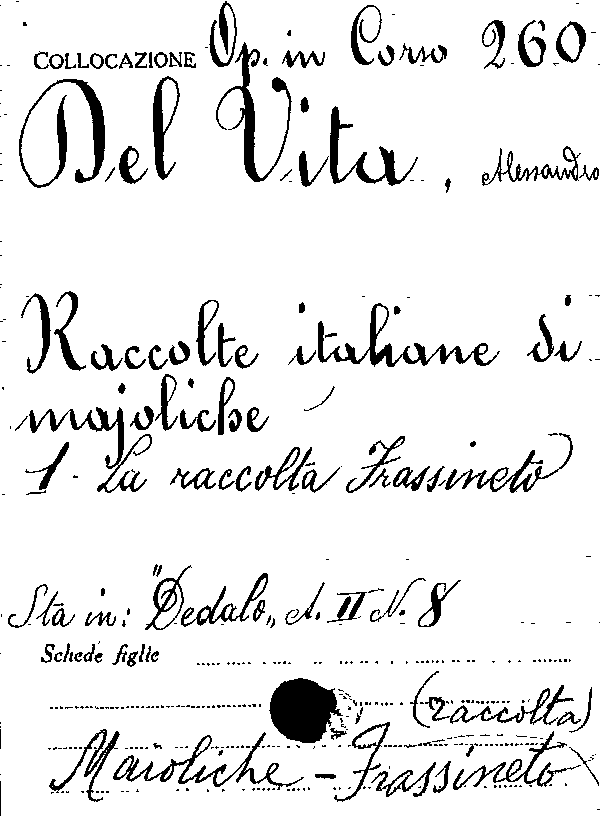 COLLOCAZIONE Op. in Corso 260
Del Vita, Alessandro
Raccolte italiane di
majoliche
1. La raccolta Frassineto
Sta in: "Dedalo„ A. II N. 8
Schede figlie
(raccolta)
Maioliche - Frassineto